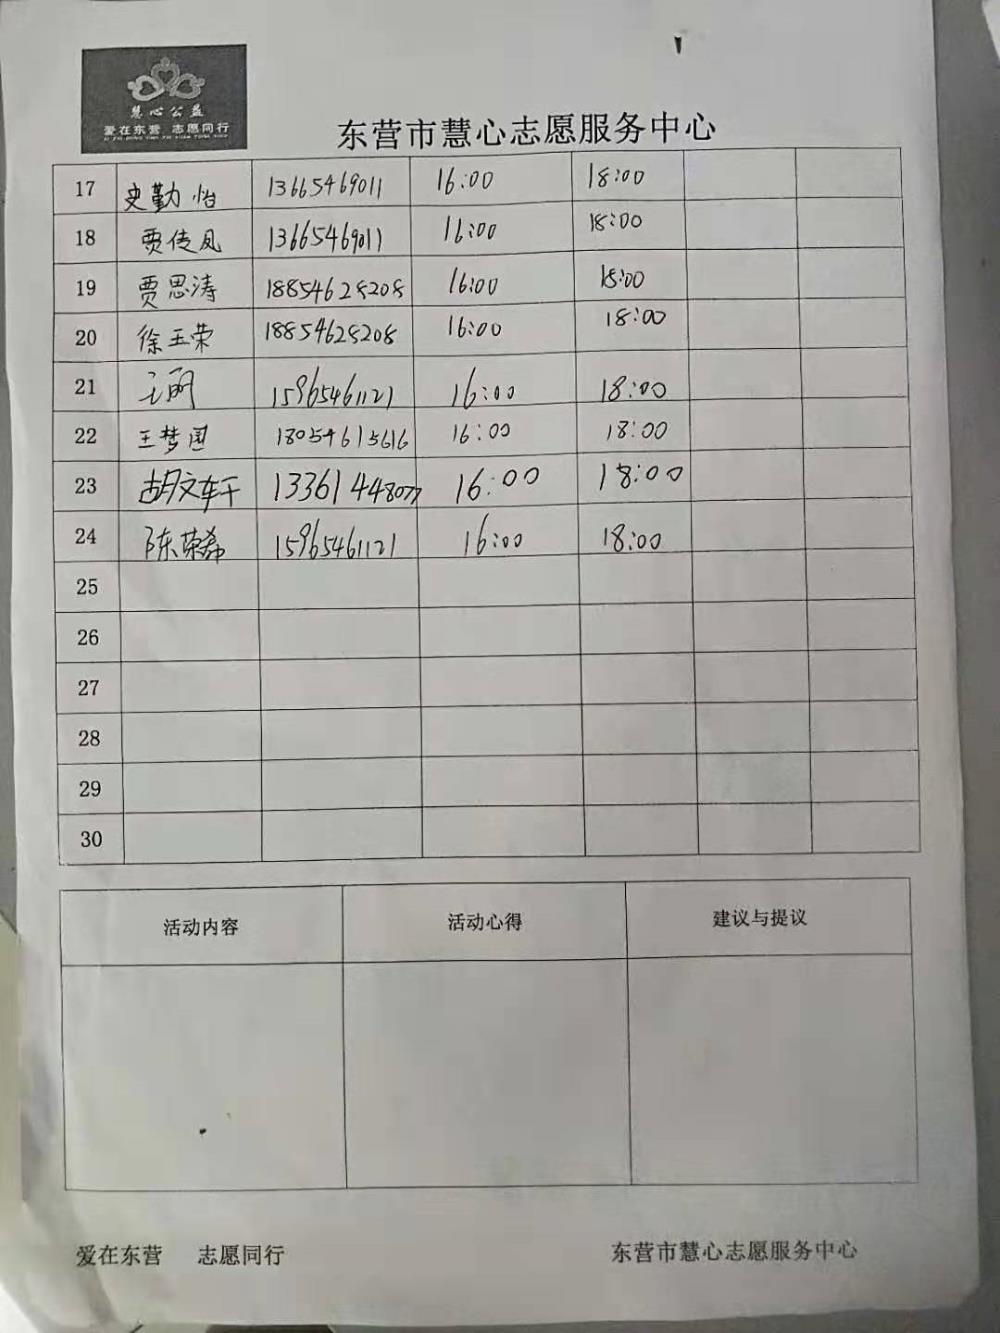 慧心公益
爱在东营 志愿同行
东营市慧心志愿服务中心
17 史勤怡 13665469011 16:00 18:00
18 贾传凤 13665469011 16:00 18:00
19 贾思涛 18854628208 16:00 18:00
20 徐玉荣 18854628208 16:00 18:00
21 15965461121 16:00 18:00
22 王梦国 18054615616 16:00 18:00
23 胡文轩 16:00 18:00
24 陈荣 15965461121 16:00 18:00
25
26
27
28
29
30
活动内容 活动心得 建议与提议
爱在东营 志愿同行 东营市慧心志愿服务中心